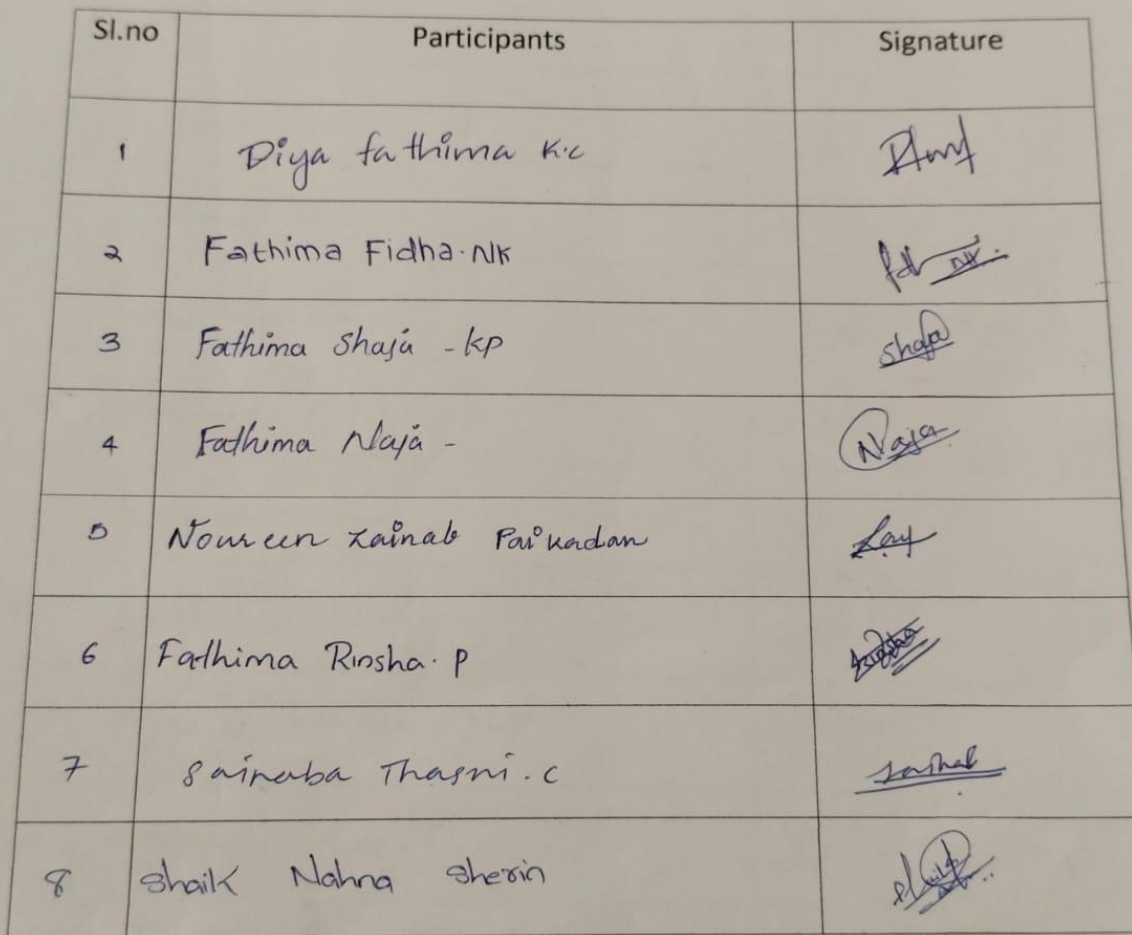 Sl.no Participants Signature
1 Diya fathima K.C
2 Fathima Fidha.NK
3 Fathima Shaja -KP Shaja
4 Fathima Naja - Naja
5 Noureen Zainab Paikadan
6 Fathima Rinsha. P
7 Sainaba Thasni.C
8 Shaik Nahna Sherin